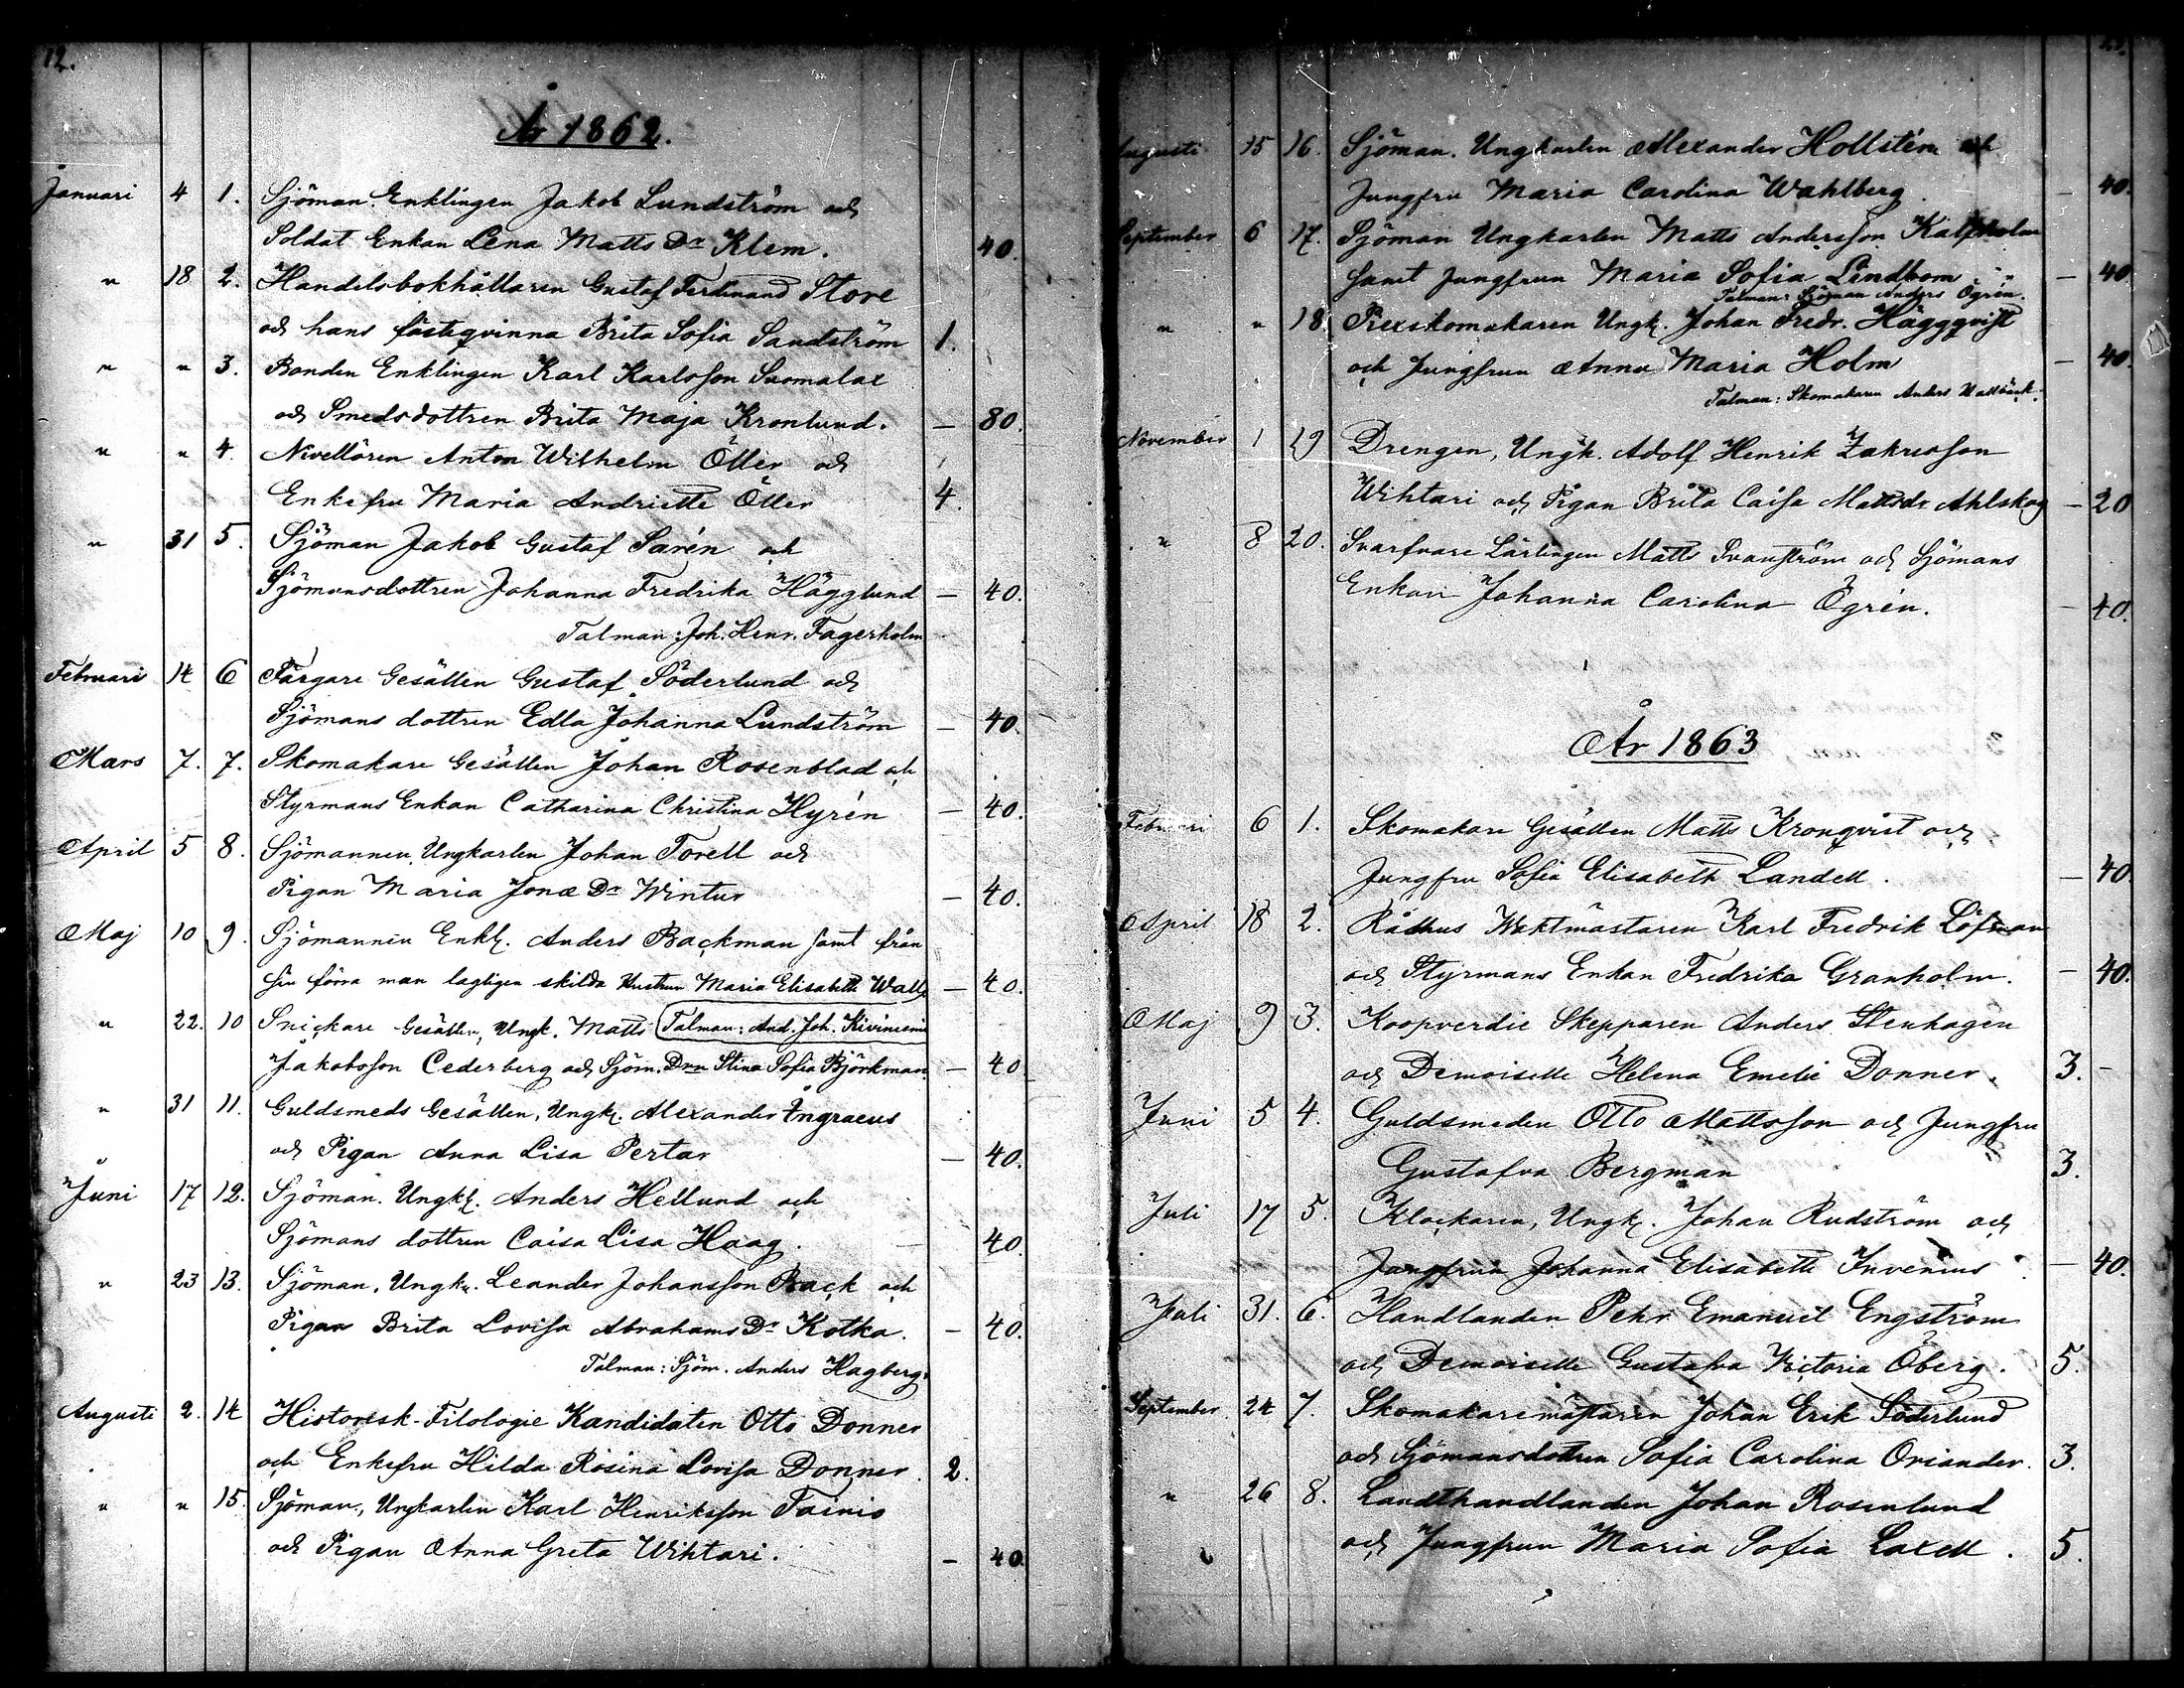 12.
År 1862.
Januari 4 1. Sjöman Enklingen Jakob Lundström och
Soldat Enkan Lena Matts Dr Klem. 40.
" 18 2. Handelsbokhållaren Gustaf Ferdinand Store
och hans fästeqvinna Brita Sofia Sandström 1.
" " 3. Bonden Enklingen Karl Karlsson Suomalax
och Smedsdottren Brita Maja Kronlund. — 80.
" " 4. Nivellören Anton Wilhelm Öller och
Enkefru Maria Andriette Öller 4.
" 31 5. Sjöman Jakob Gustaf Sarén och
Sjömansdottren Johanna Fredrika Hägglund — 40.
Talman: Joh. Henr. Fagerholm
Februari 14 6 Färgare Gesällen Gustaf Söderlund och
Sjömans dottren Edla Johanna Lundström — 40.
Mars 7. 7. Skomakare Gesällen Johan Rosenblad och
Styrmans Enkan Catharina Christina Hyrén — 40.
April 5 8. Sjömannen, Ungkarlen Johan Forell och
Pigan Maria Jonæ Dr Winter — 40.
Maj 10 9. Sjömannen Enkl. Anders Backman samt från
sin förra man lagligen skilda Hustrun Maria Elisabeth Wall — 40.
" 22. 10 Snickare Gesällen, Ungk. Matts Talman: And. Joh. Kiviniemi
Jakobsson Cederberg och Sjöm. Drn Stina Sofia Björkman. — 40
" 31 11. Guldsmeds Gesällen, Ungk. Alexander Ingraeus
och Pigan Anna Lisa Pertar — 40.
Juni 17 12. Sjöman. Ungk. Anders Hellund och
Sjömans dottren Caisa Lisa Haag. 40.
" 23 13. Sjöman, Ungk. Leander Johansson Back och
Pigan Brita Lovisa Abrahams Dr Kotka. — 40.
Talman: Sjöm. Anders Hagberg.
Augusti 2. 14 Historisk-Filologie Kandidaten Otto Donner
och Enkefru Hilda Rosina Lovisa Donner. 2.
" " 15. Sjöman, Ungkarlen Karl Henriksson Fainio
och Pigan Anna Greta Wihtari. — 40.
Augusti 15 16. Sjöman. Ungkarlen Alexander Hollstén och
Jungfru Maria Carolina Wahlberg — 40.
September 6 17. Sjöman Ungkarlen Matts Andersson Kalfholm
samt Jungfrun Maria Sofia Lindbom — 40
Talman: Sjöman Anders Ögrén.
" " 18 Piexskomakaren Ungk. Johan Fredr. Häggqvist
och Jungfrun Anna Maria Holm — 40.
Talman: Skomakaren Anders Wallbäck.
November 1 19 Drengen, Ungk. Adolf Henrik Zakrisson
Wihtari och Pigan Brita Caisa Mattsdr Ahlskog — 20
" 8 20. Svarfvare Lärlingen Matts Svanström och Sjömans
Enkan Johanna Carolina Ögrén. — 40.
År 1863
Februari 6 1. Skomakare Gesällen Matts Kronqvist och
Jungfru Sofia Elisabeth Landell. — 40.
April 18 2. Rådhus Waktmästaren Karl Fredrik Löfman
och Styrmans Enkan Fredrika Granholm. — 40.
Maj 9 3. Koopverdie Skepparen Anders Stenhagen
och Demoiselle Helena Emelie Donner. 3. —
Juni 5 4. Guldsmeden Otto Mattsson och Jungfru
Gustafva Bergman 3.
Juli 17 5. Klockaren, Ungk. Johan Rudström och
Jungfrun Johanna Elisabeth Invenius. — 40.
Juli 31. 6. Handlanden Pehr Emanuel Engström
och Demoiselle Gustafva Victoria Öberg. 5.
September 24 7. Skomakaremästaren Johan Erik Söderlund
och Sjömansdottren Sofia Carolina Oriander. 3.
" 26 8. Landthandlanden Johan Rosenlund
och Jungfrun Maria Sofia Laxell. 5.